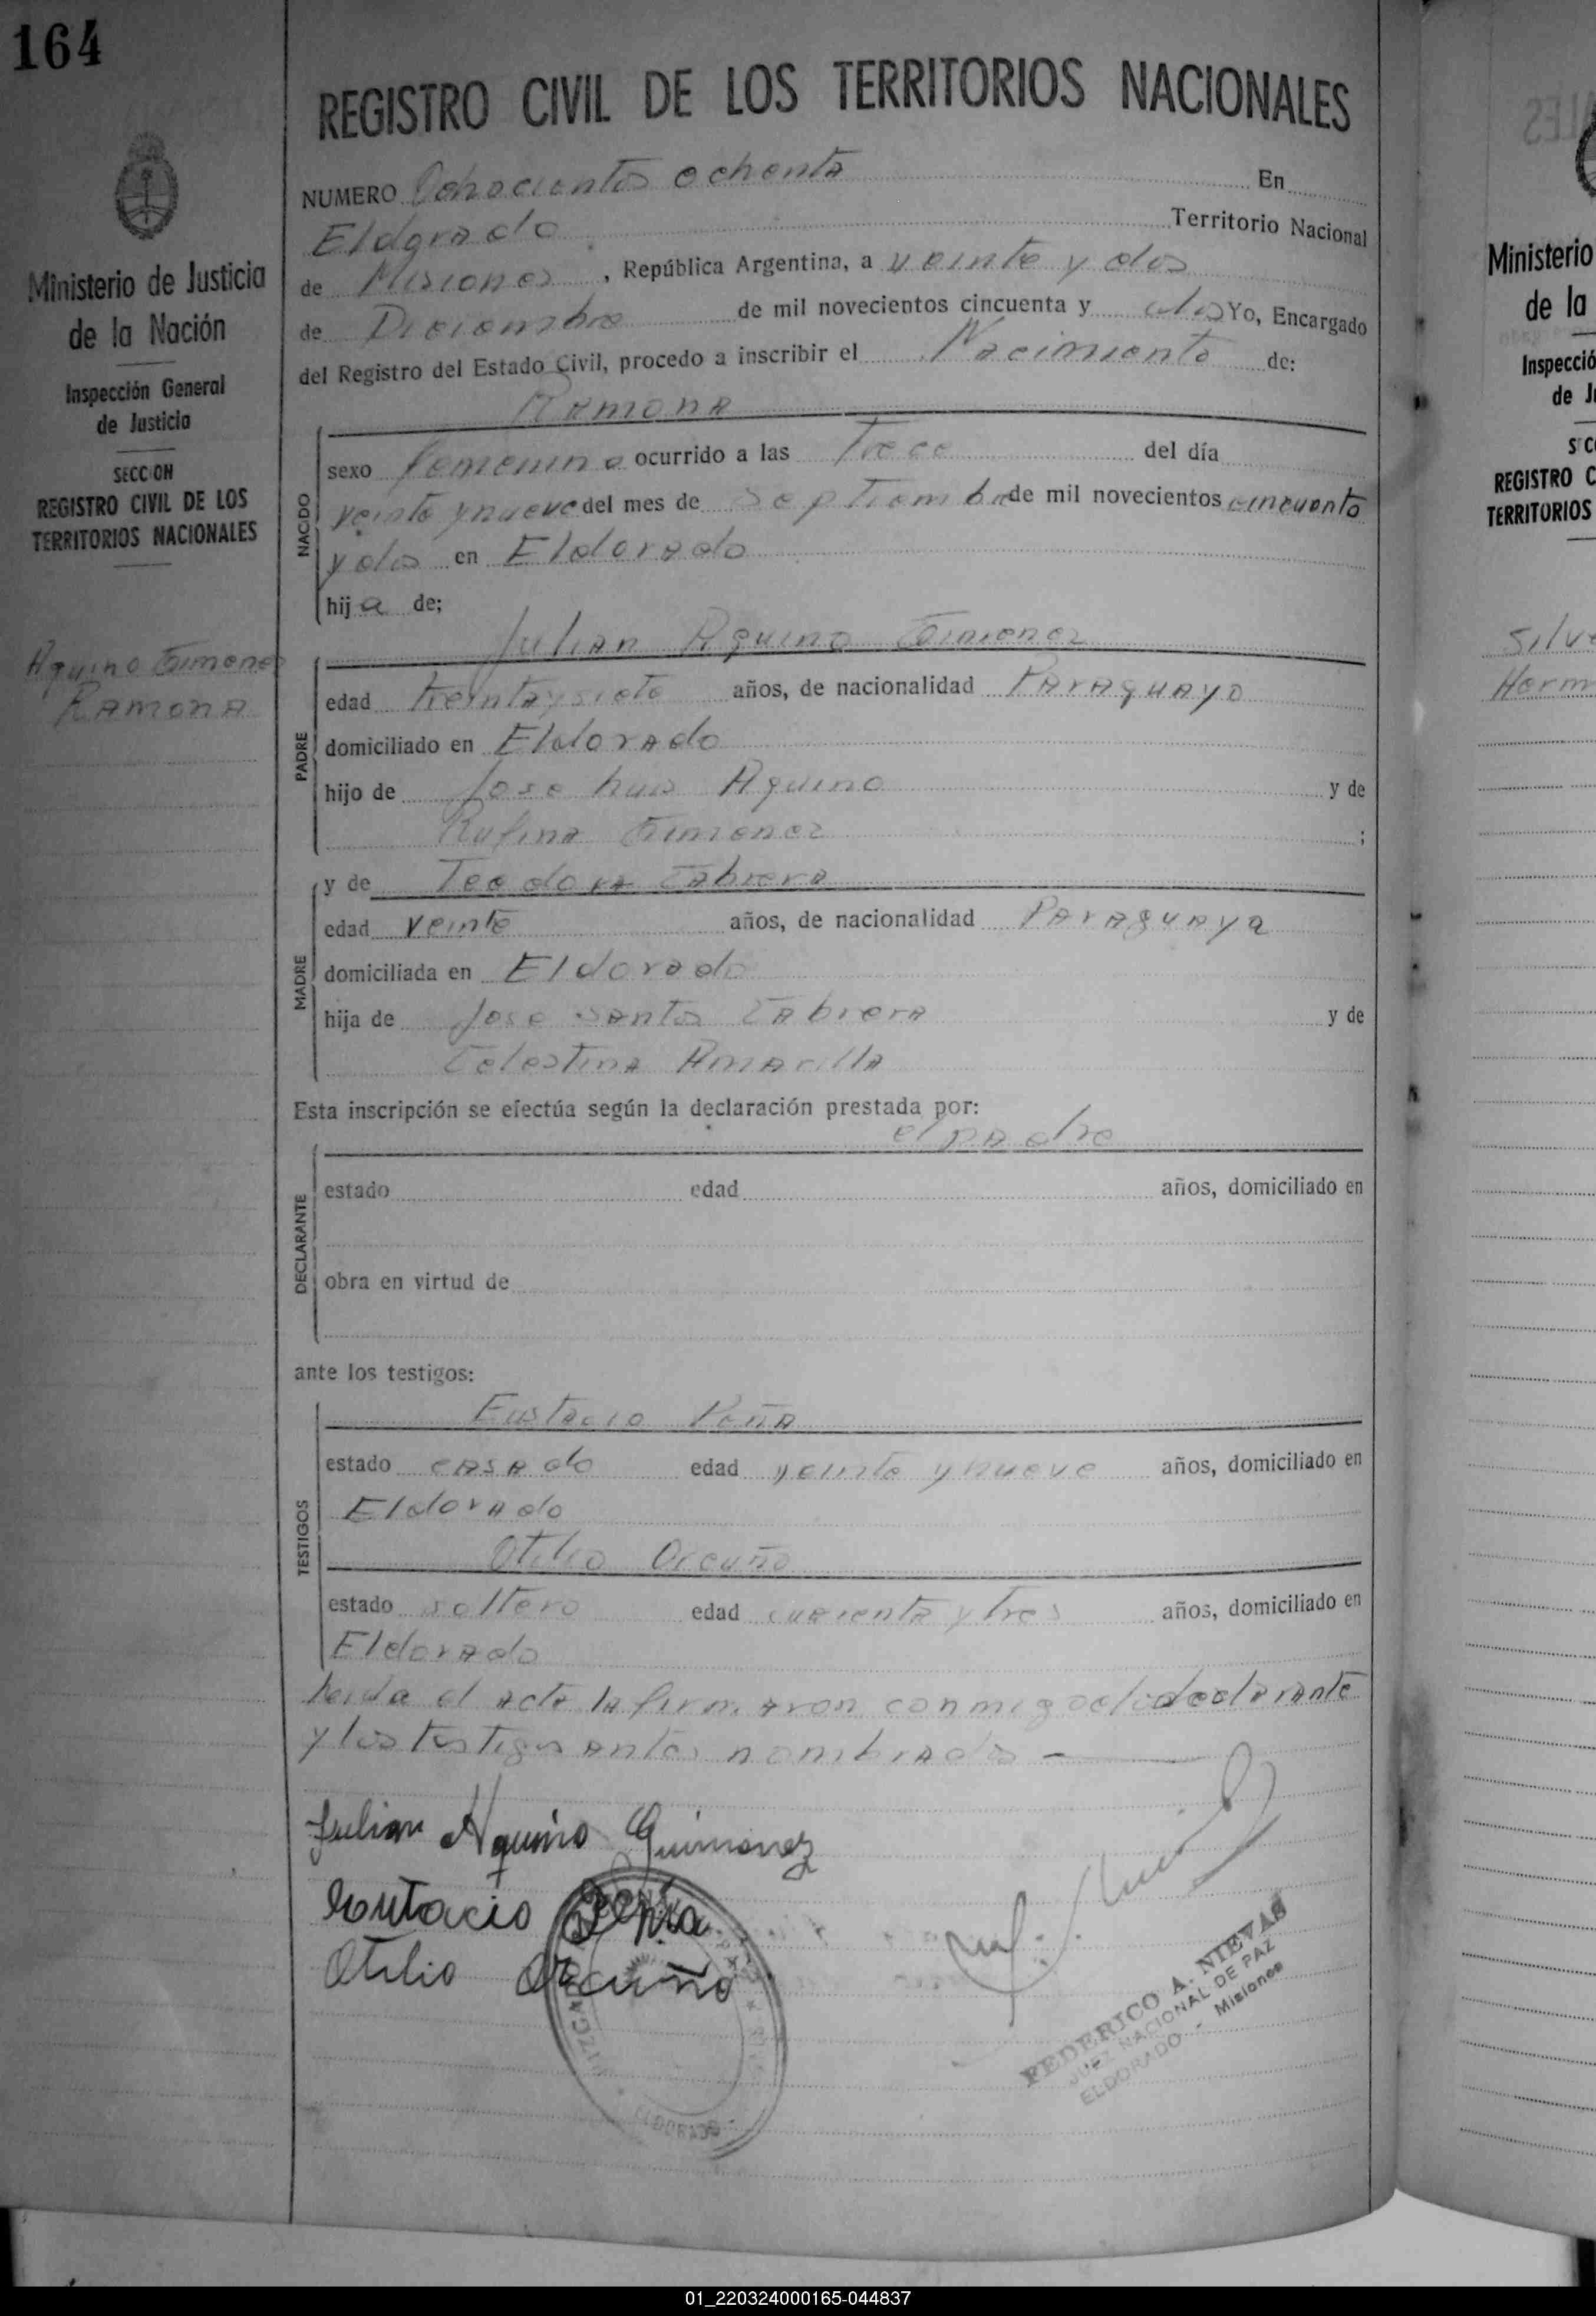 164
REGISTRO CIVIL DE LOS TERRITORIOS NACIONALES
NUMERO Ochocientos ochenta En
Eldorado Territorio Nacional
de Misiones, República Argentina, a veinte y dos
de Diciembre de mil novecientos cincuenta y dos Yo, Encargado
del Registro del Estado Civil, procedo a inscribir el Nacimiento de:
Ramona
NACIDO
sexo femenino ocurrido a las Trece del día
veinte y nueve del mes de Septiembre de mil novecientos cincuenta
y dos en Eldorado
hija de;
Julian Aquino Gimenez
PADRE
edad treinta y siete años, de nacionalidad Paraguayo
domiciliado en Eldorado
hijo de Jose Luis Aquino y de
Rufina Gimenez ;
MADRE
y de Teodora Cabrera
edad veinte años, de nacionalidad Paraguaya
domiciliada en Eldorado
hija de Jose Santos Cabrera y de
Celestina Amarilla
Esta inscripción se efectúa según la declaración prestada por:
el padre
DECLARANTE
estado edad años, domiciliado en
obra en virtud de
ante los testigos:
TESTIGOS
Eustacio Peña
estado casado edad veinte y nueve años, domiciliado en
Eldorado
Otilio Orcuño
estado soltero edad cuarenta y tres años, domiciliado en
Eldorado
Leida el acta la firmaron conmigo el declarante
y los testigos antes nombrados
Julian Aquino Guimenez
Eutacio Peña
Otilio Orcuño
ELDORADO
FEDERICO A. NIEVAS
JUEZ NACIONAL DE PAZ
ELDORADO - Misiones
Ministerio de Justicia
de la Nación
Inspección General
de Justicia
SECCION
REGISTRO CIVIL DE LOS
TERRITORIOS NACIONALES
Aquino Gimenez
Ramona
Ministerio
de la
Inspecció
de J
REGISTRO C
TERRITORIOS
Silve
Herm
01_220324000165-044837